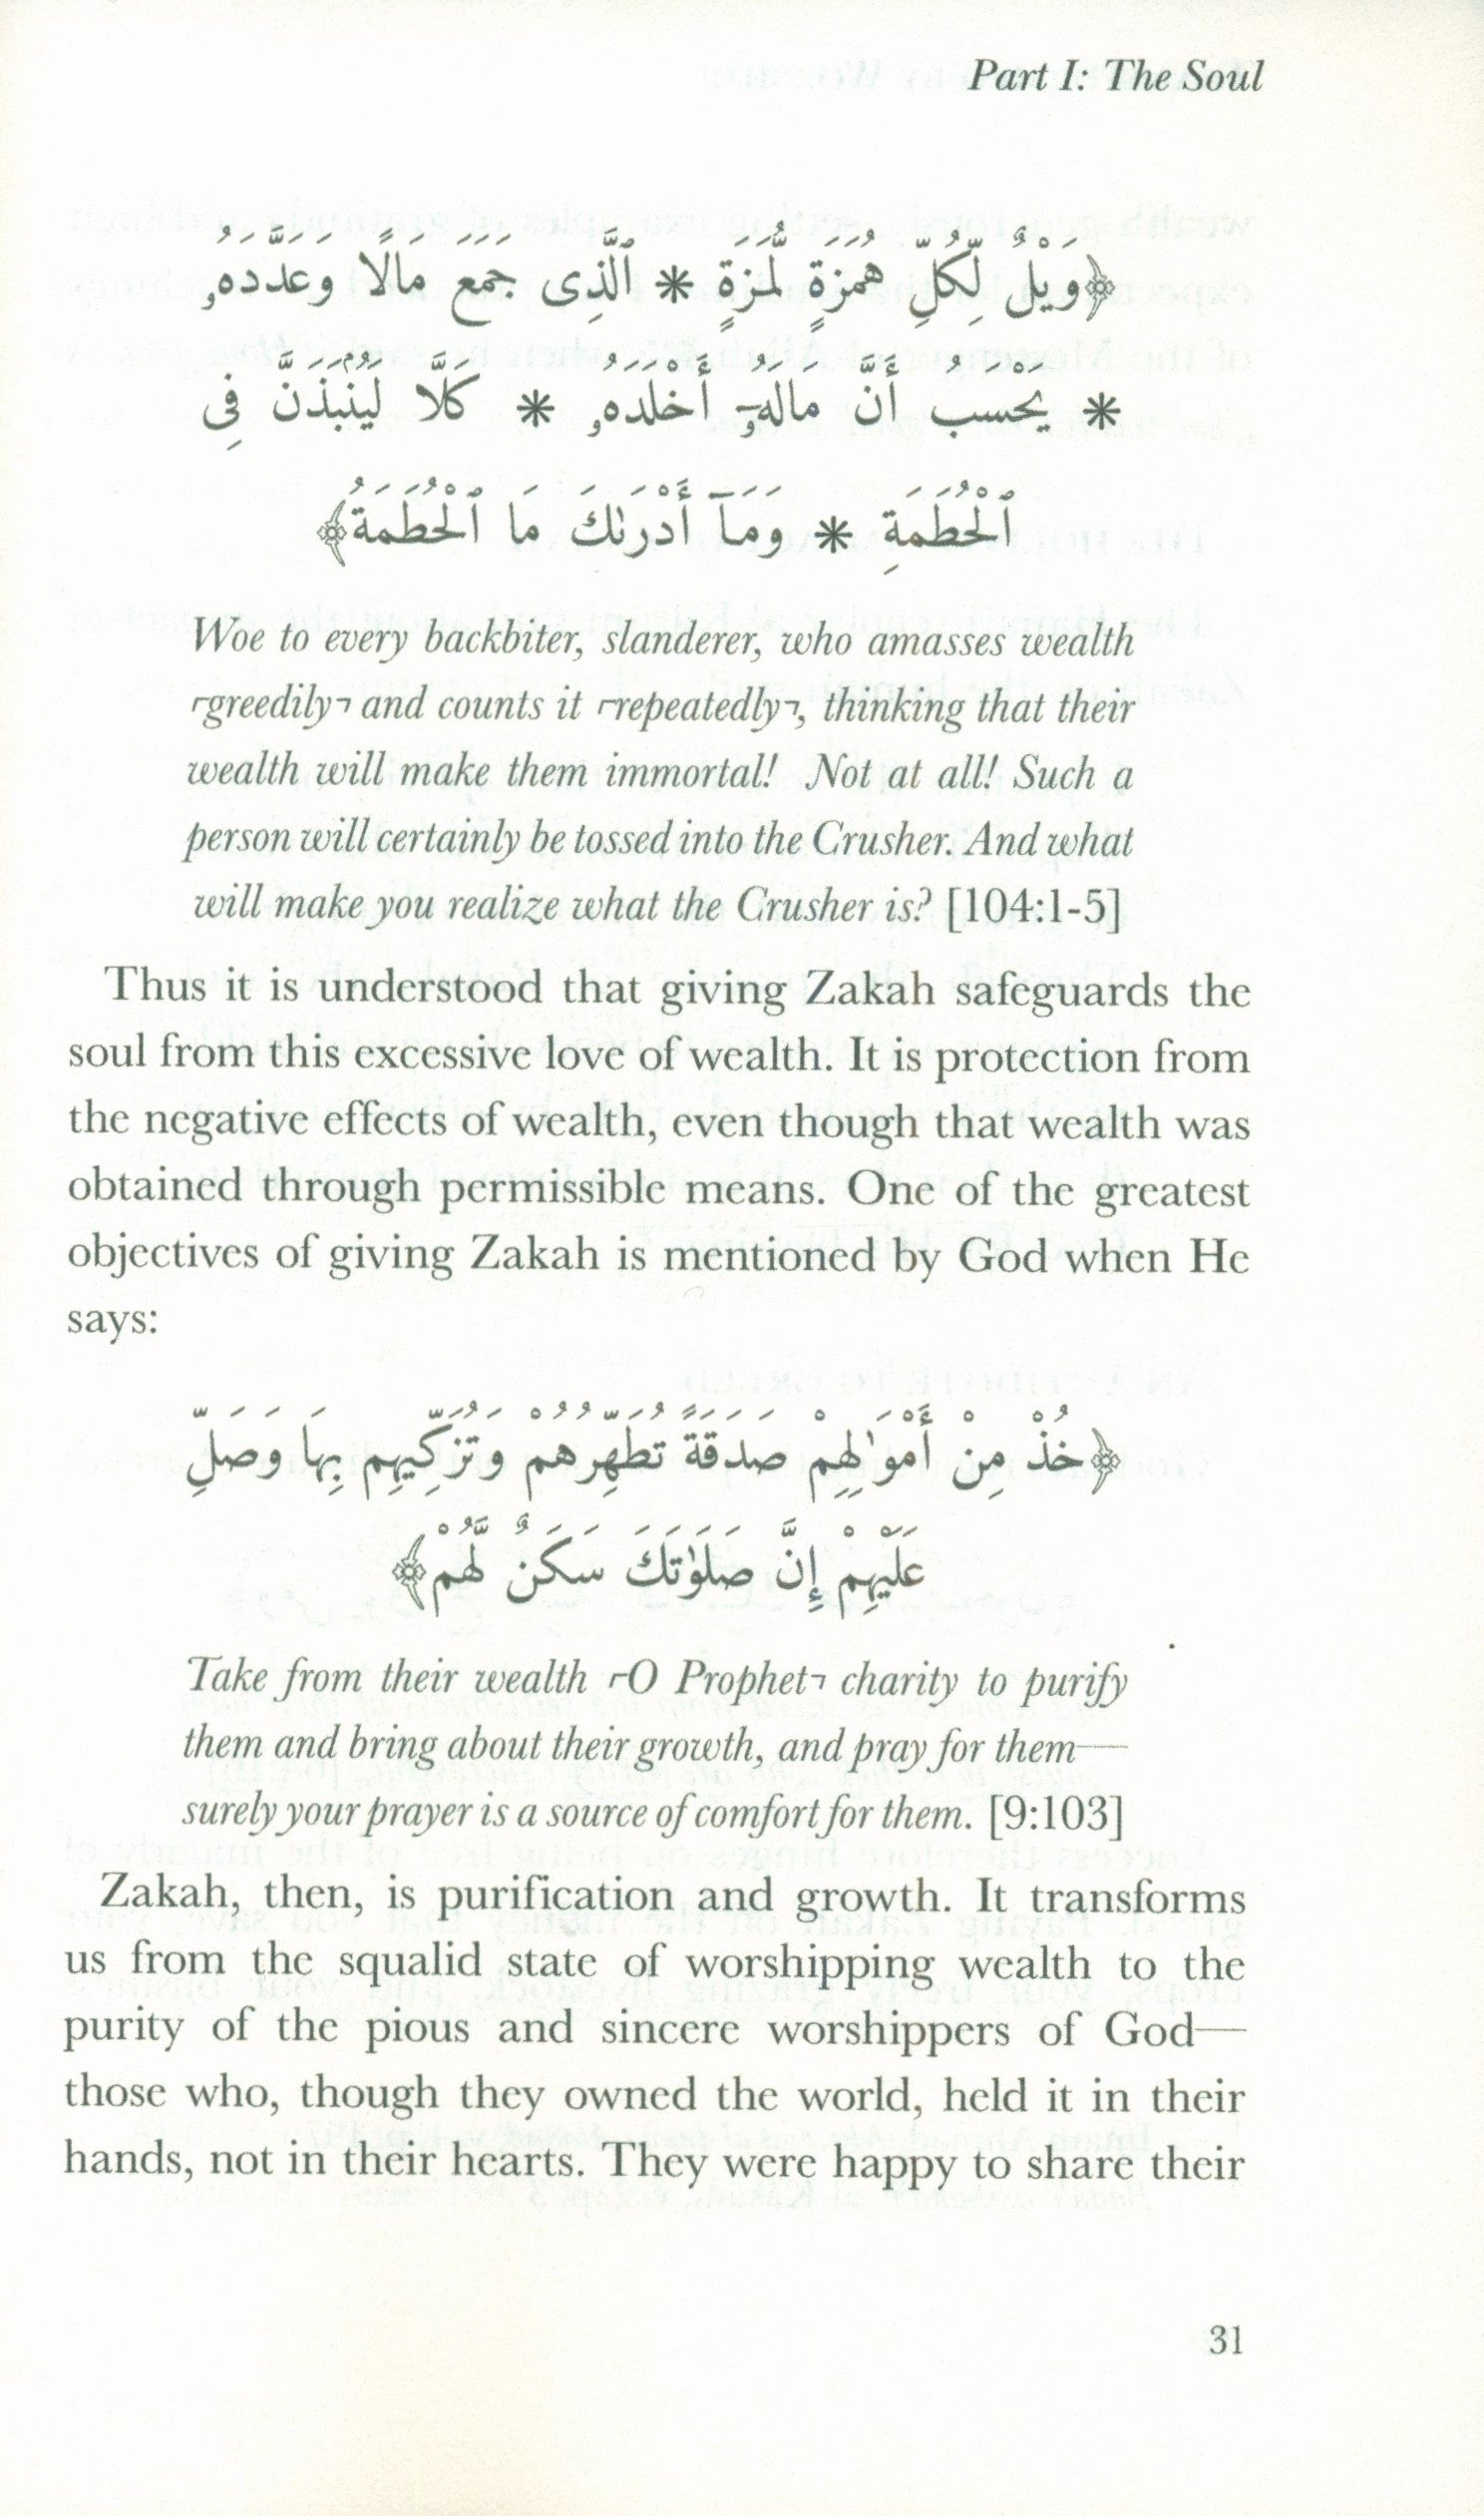 Part I: The Soul
﴿وَيْلٌ لِّكُلِّ هُمَزَةٍ لُّمَزَةٍ * ٱلَّذِى جَمَعَ مَالًا وَعَدَّدَهُۥ
* يَحْسَبُ أَنَّ مَالَهُۥٓ أَخْلَدَهُۥ * كَلَّا لَيُنۢبَذَنَّ فِى
ٱلْحُطَمَةِ * وَمَآ أَدْرَىٰكَ مَا ٱلْحُطَمَةُ﴾
Woe to every backbiter, slanderer, who amasses wealth
⌜greedily⌝ and counts it ⌜repeatedly⌝, thinking that their
wealth will make them immortal! Not at all! Such a
person will certainly be tossed into the Crusher. And what
will make you realize what the Crusher is? [104:1-5]
Thus it is understood that giving Zakah safeguards the
soul from this excessive love of wealth. It is protection from
the negative effects of wealth, even though that wealth was
obtained through permissible means. One of the greatest
objectives of giving Zakah is mentioned by God when He
says:
﴿خُذْ مِنْ أَمْوَٰلِهِمْ صَدَقَةً تُطَهِّرُهُمْ وَتُزَكِّيهِم بِهَا وَصَلِّ
عَلَيْهِمْ إِنَّ صَلَوٰتَكَ سَكَنٌ لَّهُمْ﴾
Take from their wealth ⌜O Prophet⌝ charity to purify
them and bring about their growth, and pray for them—
surely your prayer is a source of comfort for them. [9:103]
Zakah, then, is purification and growth. It transforms
us from the squalid state of worshipping wealth to the
purity of the pious and sincere worshippers of God—
those who, though they owned the world, held it in their
hands, not in their hearts. They were happy to share their
31